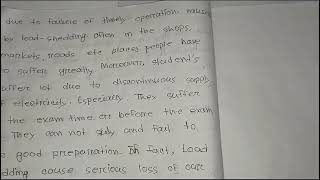 due to failure of timely operation. caus
by load-shedding often in the shops,
markets, roads etc places people have
to suffer greatly. Moreover, student's
suffer lot due to discontinuous supply
of electricity. Especially, They suffer
the exam time or before the exam
They can not study and fail to
good preparation. In fact, Load
dding cause serious loss of our